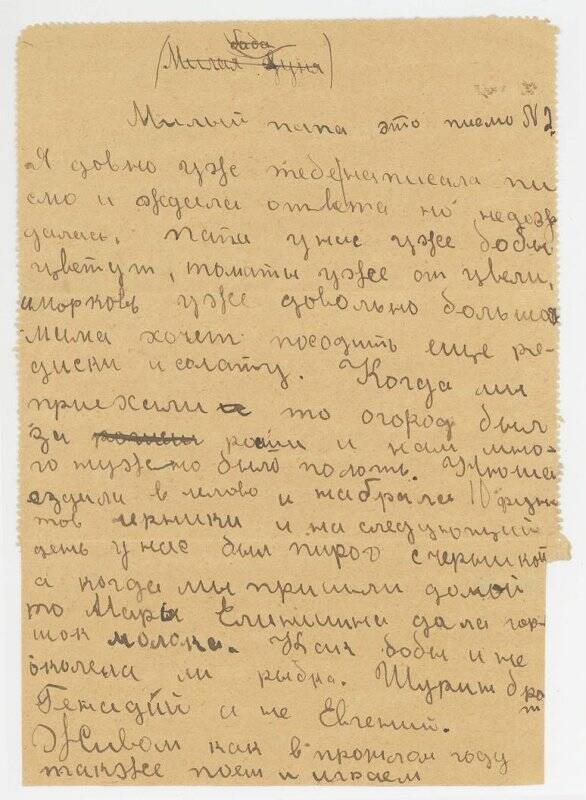 баба
(Милая Дуня)
Милый папа это писмо N 2
Я довно уже тебе написала пи
смо и ждала ответа но недож
далась. Папа унас уже бобы
цветут, томаты уже от цвели,
иморковь уже довольно большая
Мима хочет посодить еще ре-
диски и солату. Когда мы
приехали то огород был
За росши и нам мно-
го нужно было полоть. Ююша
ездили в лелово и набрала 10 фун
тов черники и на следующий
день у нас был пирог счерникой
а когда мы пришли домой
то Марья дала гор-
шок молока. Как бобы и не
околела ли рыбка. Шурин брат
Генадий а не Евгений.
Живом как в прошлом году
также поем и играем